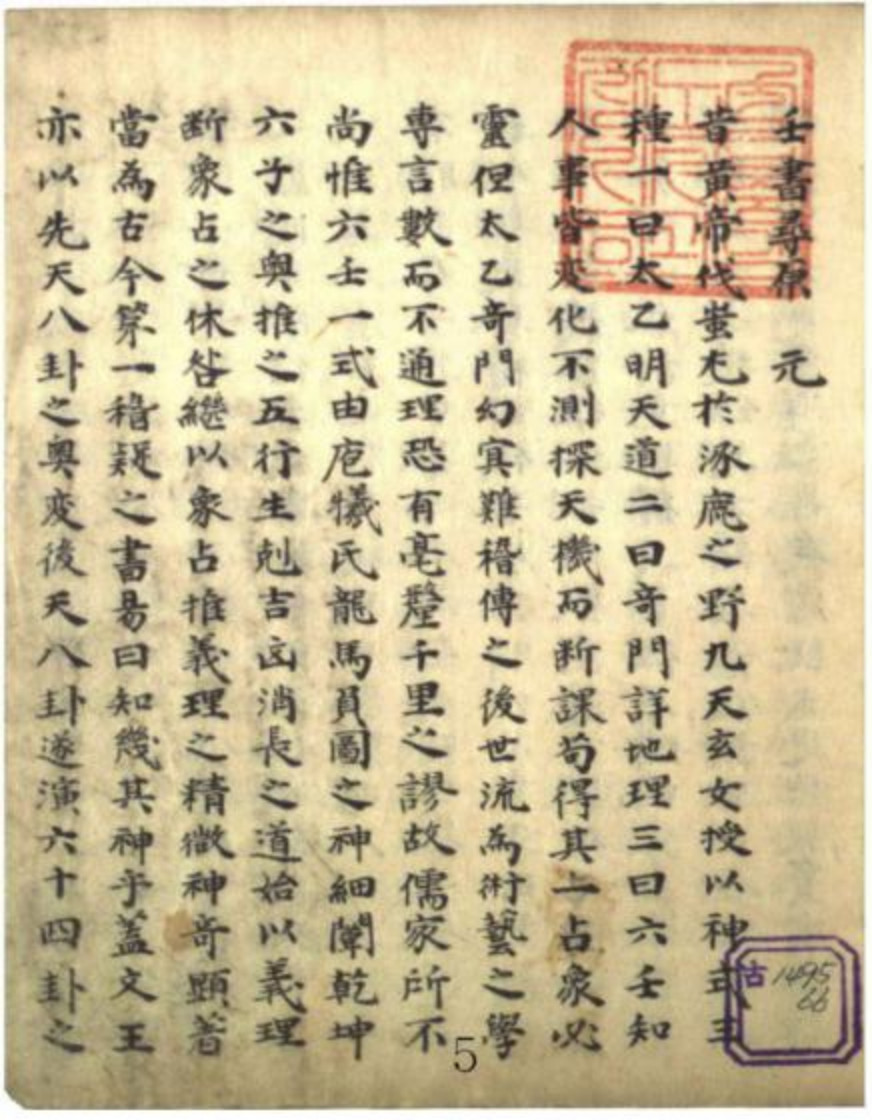 壬書尋原　元
昔黃帝伐蚩尤於涿鹿之野九天玄女授以神式三
種一曰太乙明天道二曰奇門詳地理三曰六壬知
人事皆変化不測探天機而断課苟得其一占象必
靈但太乙奇門幻寘難稽傳之後世流為術藝之學
專言數而不通理恐有毫釐千里之謬故儒家所不
尚惟六壬一式由庖犧氏龍馬負圖之神細闡乾坤
六子之奧推之五行生剋吉凶消長之道始以義理
断象占之休咎繼以象占推義理之精微神奇顕著
當為古今第一稽疑之書易曰知幾其神乎蓋文王
亦以先天八卦之奧変後天八卦遂演六十四卦之
古 1495
66
5